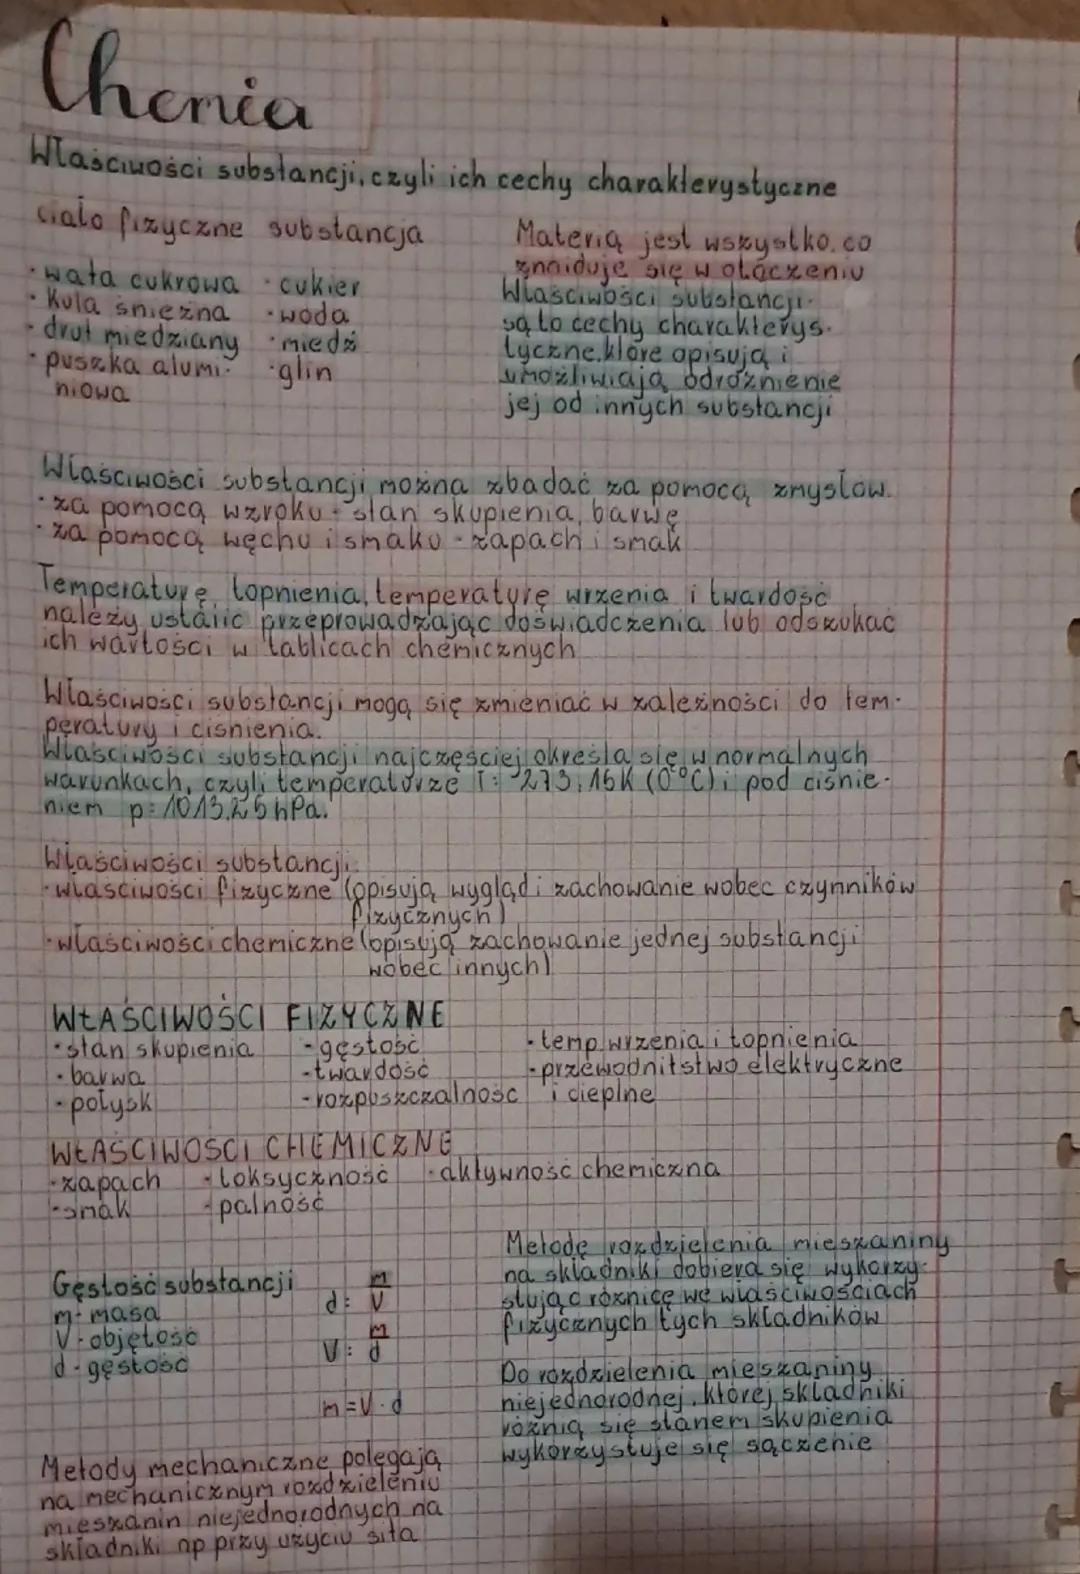 Chemia
Właściwości substancji, czyli ich cechy charakterystyczne
ciało fizyczne substancja
· wata cukrowa · cukier
· kula śnieżna · woda
· drut miedziany · miedź
· puszka alumi- · glin
niowa
Materią jest wszystko, co
znajduje się w otoczeniu
Właściwości substancji -
są to cechy charakterys-
tyczne, które opisują i
umożliwiają odróżnienie
jej od innych substancji
Właściwości substancji można zbadać za pomocą zmysłów.
· za pomocą wzroku - stan skupienia, barwę
· za pomocą węchu i smaku - zapach i smak
Temperaturę topnienia, temperaturę wrzenia i twardość
należy ustalić przeprowadzając doświadczenia lub odszukać
ich wartości w tablicach chemicznych
Właściwości substancji mogą się zmieniać w zależności do tem-
peratury i ciśnienia.
Właściwości substancji najczęściej określa się w normalnych
warunkach, czyli temperaturze T= 273,15K (0°C) i pod ciśnie-
niem p= 1013,25 hPa.
Właściwości substancji:
- właściwości fizyczne (opisują wygląd i zachowanie wobec czynników
fizycznych)
- właściwości chemiczne (opisują zachowanie jednej substancji
wobec innych)
WŁAŚCIWOŚCI FIZYCZNE
· stan skupienia - gęstość · temp. wrzenia i topnienia
- barwa - twardość - przewodnitstwo elektryczne
- połysk - rozpuszczalność i cieplne
WŁAŚCIWOŚCI CHEMICZNE
- zapach - toksyczność - aktywność chemiczna
- smak - palność
Gęstość substancji
m - masa
V - objętość
d - gęstość
d = m/V
V = m/d
m = V · d
Metodę rozdzielenia mieszaniny
na składniki dobiera się wykorzy-
stując różnicę we właściwościach
fizycznych tych składników
Do rozdzielenia mieszaniny
niejednorodnej, której składniki
różnią się stanem skupienia
wykorzystuje się sączenie
Metody mechaniczne polegają
na mechanicznym rozdzieleniu
mieszanin niejednorodnych na
składniki np przy użyciu sita